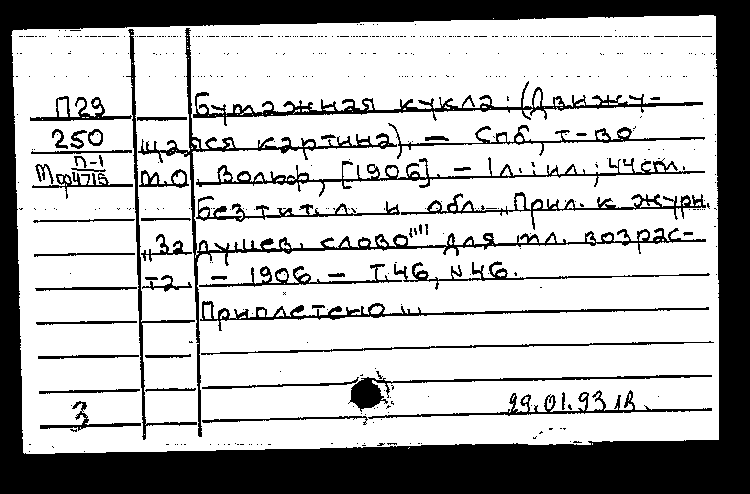 П29 Бумажная кукла: (Движу-
250 щаяся картина). — Спб, т-во
П-1
4715 М.О. Вольф, [1906]. — 1л.: ил.; 44см.
Без тит. л. и обл. „Прил. к журн.
„Задушев. слово"" для мл. возрас-
та. — 1906. — Т.46, №46.
Приплетено ...
3 29.01.93